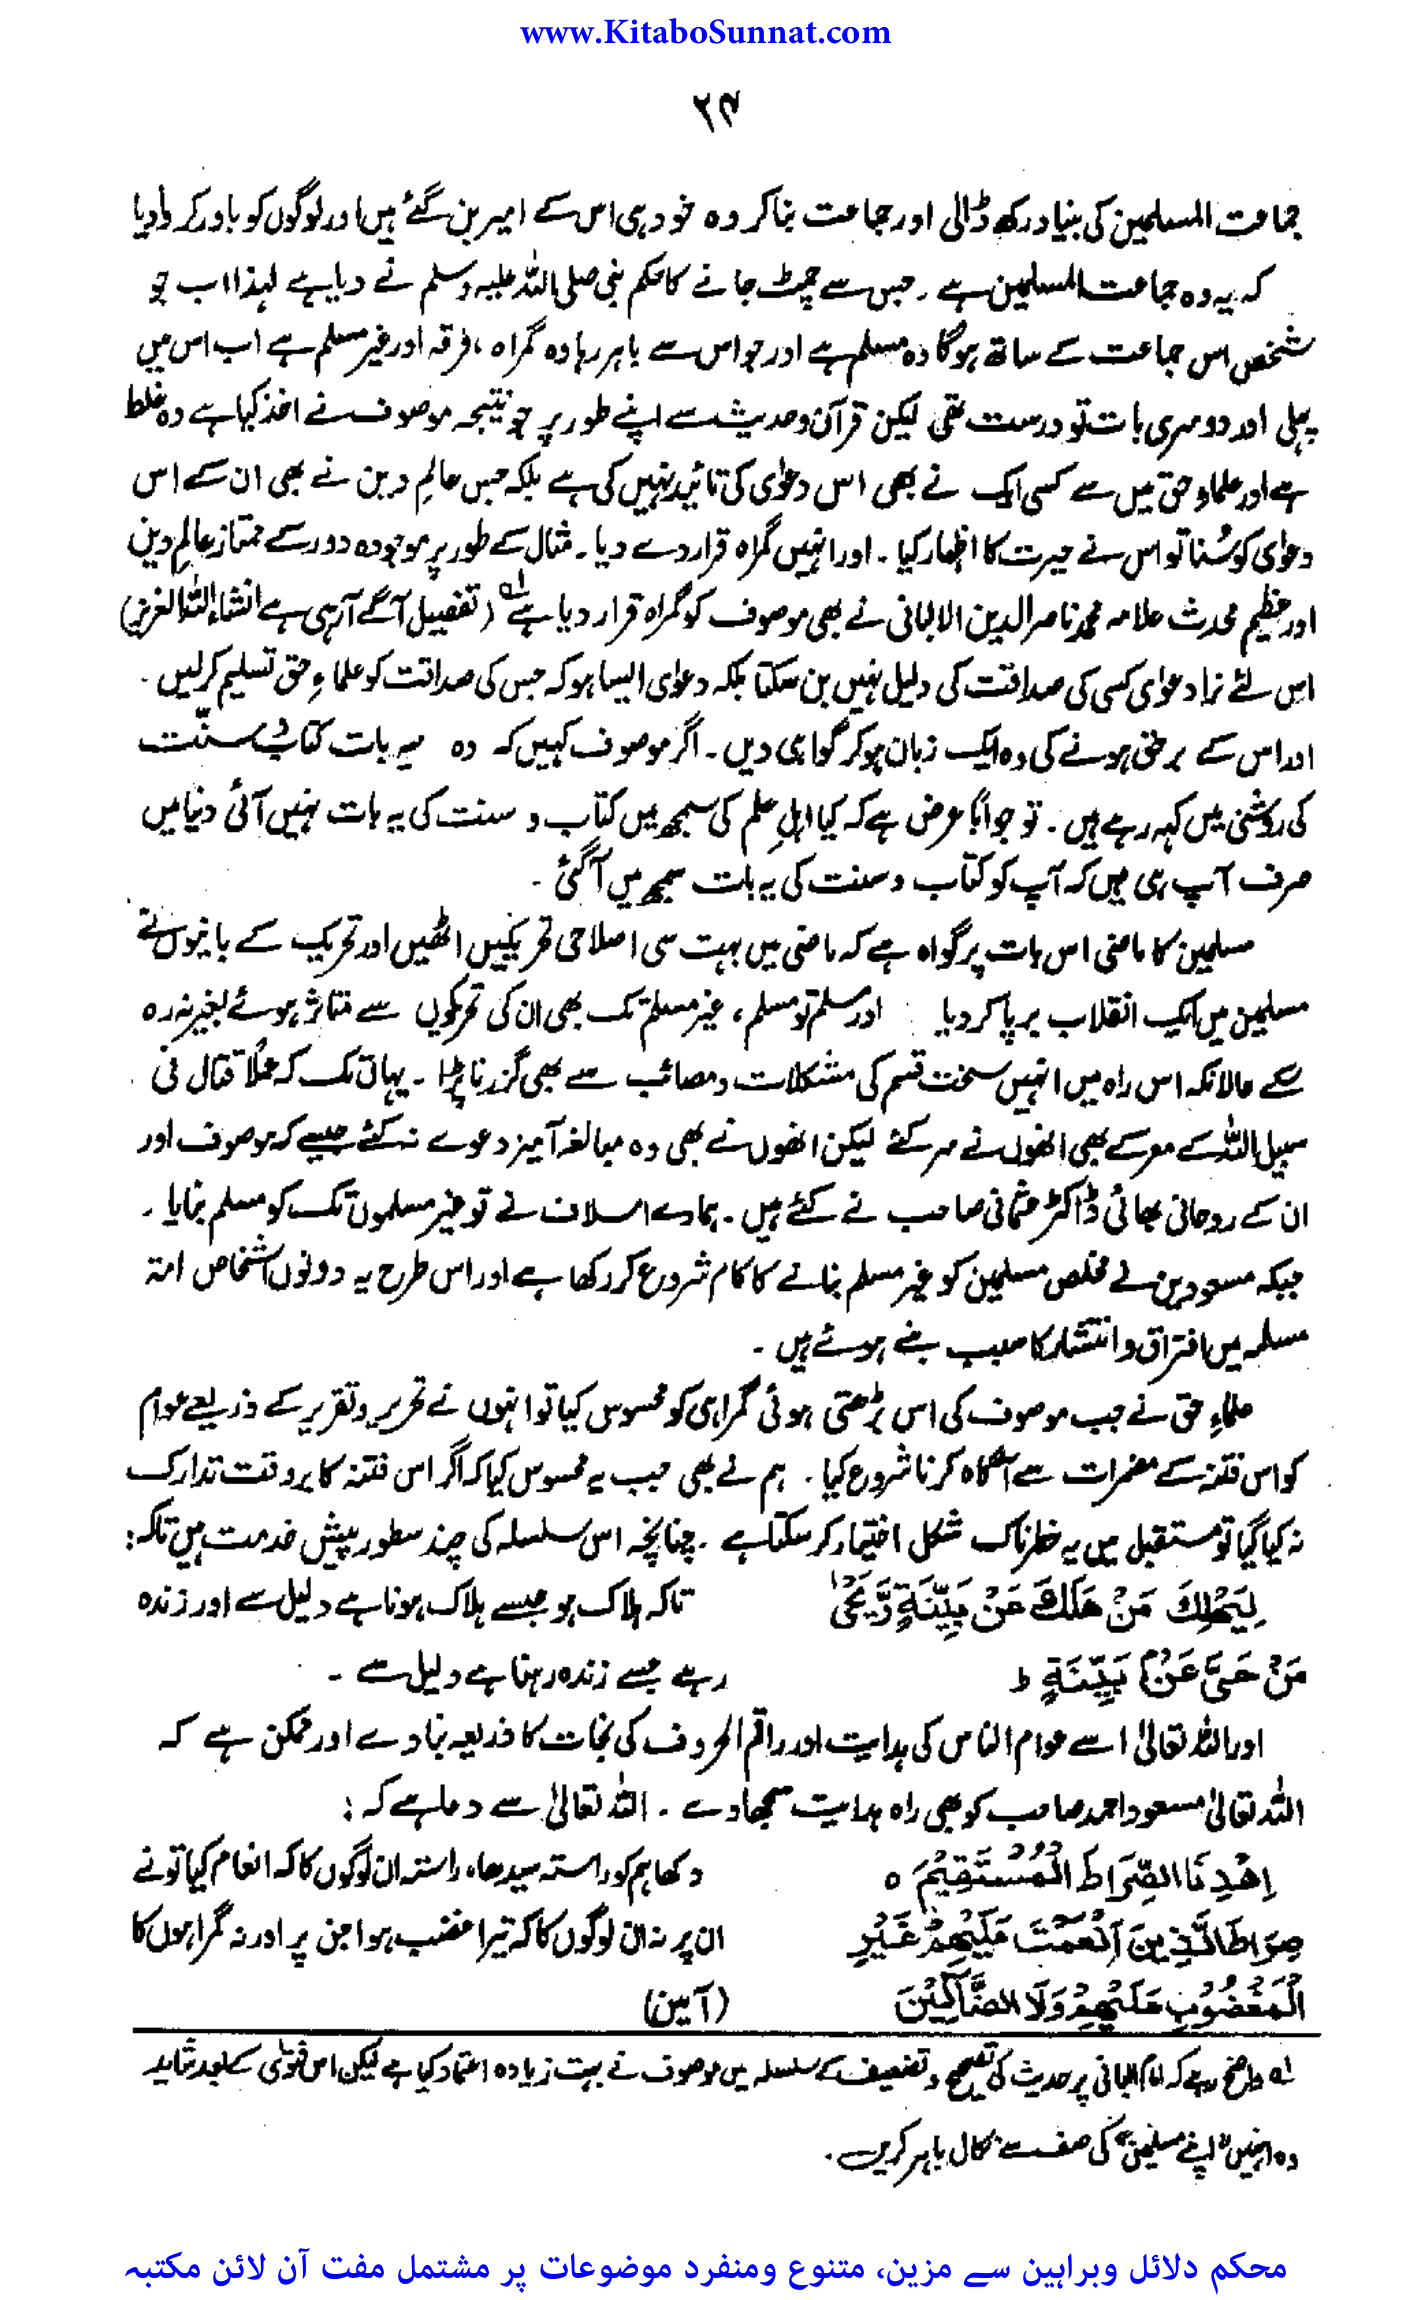 www.KitaboSunnat.com
۲۹
جماعت المسلمین کی بنیاد رکھ ڈالی اور جماعت بنا کر وہ خود ہی اس کے امیر بن گئے ہیں اور لوگوں کو باور کروا دیا
کہ یہ وہ جماعت المسلمین ہے ۔ جس سے چمٹ جانے کا حکم نبی صلی اللہ علیہ وسلم نے دیا ہے لہذا اب جو
شخص اس جماعت کے ساتھ ہو گا وہ مسلم ہے اور جو اس سے باہر رہا وہ گمراہ ، فرقہ اور غیر مسلم ہے اب اس میں
پہلی اور دوسری بات تو درست تھی لیکن قرآن و حدیث سے اپنے طور پر جو نتیجہ موصوف نے اخذ کیا ہے وہ غلط
ہے اور علماء حق میں سے کسی ایک نے بھی اس دعوٰی کی تائید نہیں کی ہے بلکہ جس عالمِ دین نے بھی ان کے اس
دعوٰی کو سُنا تو اس نے حیرت کا اظہار کیا ۔ اور انہیں گمراہ قرار دے دیا ۔ مثال کے طور پر موجودہ دور کے ممتاز عالمِ دین
اور عظیم محدث علامہ محمد ناصر الدین الالبانی نے بھی موصوف کو گمراہ قرار دیا ہے لہ (تفصیل آگے آرہی ہے انشاء اللہ العزیز)
اس لئے نرا دعوٰی کسی کی صداقت کی دلیل نہیں بن سکتا بلکہ دعوٰی ایسا ہو کہ جس کی صداقت کو علماءِ حق تسلیم کر لیں ۔
اور اس کے برحق ہونے کی وہ ایک زبان ہو کر گواہی دیں ۔ اگر موصوف کہیں کہ وہ یہ بات کتاب و سنّت
کی روشنی میں کہہ رہے ہیں ۔ تو جواباً عرض ہے کہ کیا اہلِ علم کی سمجھ میں کتاب و سنت کی یہ بات نہیں آئی دنیا میں
صرف آپ ہی ہیں کہ آپ کو کتاب و سنت کی یہ بات سمجھ میں آگئی ۔
مسلمین کا ماضی اس بات پر گواہ ہے کہ ماضی میں بہت سی اصلاحی تحریکیں اٹھیں اور تحریک کے بانیوں نے
مسلمین میں ایک انقلاب برپا کر دیا اور مسلم تو مسلم ، غیر مسلم تک بھی ان کی تحریکوں سے متاثر ہوئے بغیر نہ رہ
سکے حالانکہ اس راہ میں انہیں سخت قسم کی مشکلات و مصائب سے بھی گزرنا پڑا ۔ یہاں تک کہ عملاً قتال فی
سبیل اللہ کے معرکے بھی انھوں نے سر کئے لیکن انھوں نے بھی وہ مبالغہ آمیز دعوے نہ کئے جیسے کہ موصوف اور
ان کے روحانی بھائی ڈاکٹر عثمانی صاحب نے کئے ہیں ۔ ہمارے اسلاف نے تو غیر مسلموں تک کو مسلم بنایا ۔
جبکہ مسعودین نے مخلص مسلمین کو غیر مسلم بنانے کا کام شروع کر رکھا ہے اور اس طرح یہ دونوں اشخاص امۃ
مسلمہ میں افتراق و انتشار کا سبب بنے ہوئے ہیں ۔
علماءِ حق نے جب موصوف کی اس بڑھتی ہوئی گمراہی کو محسوس کیا تو انہوں نے تحریر و تقریر کے ذریعے عوام
کو اس فتنہ کے مضمرات سے آگاہ کرنا شروع کیا ۔ ہم نے بھی جب یہ محسوس کیا کہ اگر اس فتنہ کا بروقت تدارک
نہ کیا گیا تو مستقبل میں یہ خطرناک شکل اختیار کر سکتا ہے ۔ چنانچہ اس سلسلہ کی چند سطور پیش خدمت ہیں تاکہ :
لِیَھْلِکَ مَنْ ھَلَکَ عَنْ بَیِّنَۃٍ وَّیَحْیٰ تاکہ ہلاک ہو جسے ہلاک ہونا ہے دلیل سے اور زندہ
مَنْ حَیَّ عَنْ بَیِّنَۃٍ ط رہے جسے زندہ رہنا ہے دلیل سے ۔
اور اللہ تعالیٰ اسے عوام الناس کی ہدایت اور راقم الحروف کی نجات کا ذریعہ بنا دے اور ممکن ہے کہ
اللہ تعالیٰ مسعود احمد صاحب کو بھی راہ ہدایت سجھا دے ۔ اللہ تعالیٰ سے دعا ہے کہ :
اِھْدِنَا الصِّرَاطَ الْمُسْتَقِیْمَ ہ دکھا ہم کو راستہ سیدھا، راستہ ان لوگوں کا کہ انعام کیا تو نے
صِرَاطَ الَّذِینَ اَنْعَمْتَ عَلَیْھِمْ غَیْرِ ان پر نہ ان لوگوں کا کہ تیرا غضب ہوا جن پر اور نہ گمراہوں کا
الْمَغْضُوْبِ عَلَیْھِمْ وَلَا الضَّآلِّیْنَ (آمین)
لہ واضح رہے کہ امام البانی پر حدیث کی تصحیح و تضعیف کے سلسلہ میں موصوف نے بہت زیادہ اعتماد کیا ہے لیکن اس فتوٰی کے بعد شاید
وہ انہیں "اپنے مسلمین" کی صف سے نکال باہر کریں ۔
محکم دلائل وبراہین سے مزین، متنوع ومنفرد موضوعات پر مشتمل مفت آن لائن مکتبہ